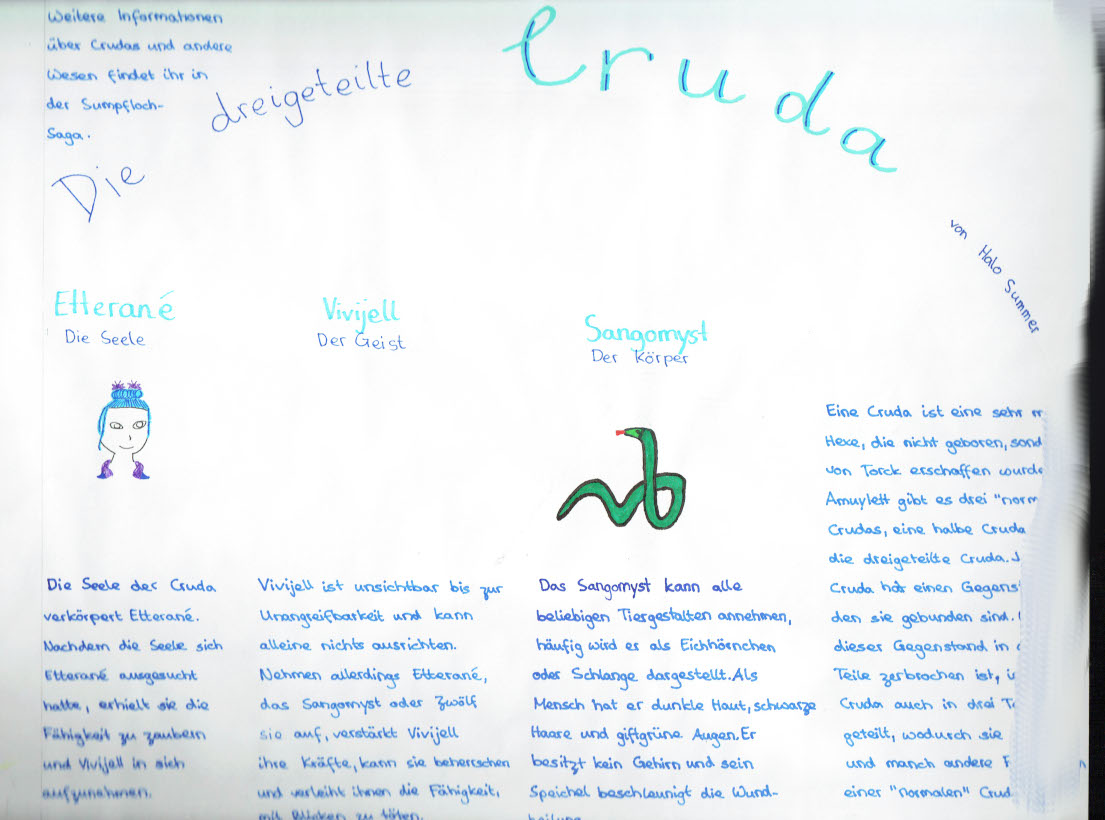 Weitere Informationen
über Crudas und andere
Wesen findet ihr in
der Sumpfloch-
Saga.
Die dreigeteilte Cruda
von Halo Summer
Etterané
Die Seele
Die Seele der Cruda
verkörpert Etterané.
Nachdem die Seele sich
Etterané ausgesucht
hatte, erhielt sie die
Fähigkeit zu zaubern
und Vivijell in sich
aufzunehmen.
Vivijell
Der Geist
Vivijell ist unsichtbar bis zur
Unangreifbarkeit und kann
alleine nichts ausrichten.
Nehmen allerdings Etterané,
das Sangomyst oder Zwölf
sie auf, verstärkt Vivijell
ihre Kräfte, kann sie beherrschen
und verleiht ihnen die Fähigkeit,
mit Blicken zu töten.
Sangomyst
Der Körper
Das Sangomyst kann alle
beliebigen Tiergestalten annehmen,
häufig wird er als Eichhörnchen
oder Schlange dargestellt. Als
Mensch hat er dunkle Haut, schwarze
Haare und giftgrüne Augen. Er
besitzt kein Gehirn und sein
Speichel beschleunigt die Wund-
heilung.
Eine Cruda ist eine sehr
Hexe, die nicht geboren, sond
von Torck erschaffen wurde
Amuylett gibt es drei "norm
Crudas, eine halbe Cruda
die dreigeteilte Cruda.
Cruda hat einen Gegens
den sie gebunden sind.
dieser Gegenstand in
Teile zerbrochen ist,
Cruda auch in drei
geteilt, wodurch sie
und manch andere
einer "normalen" Crud